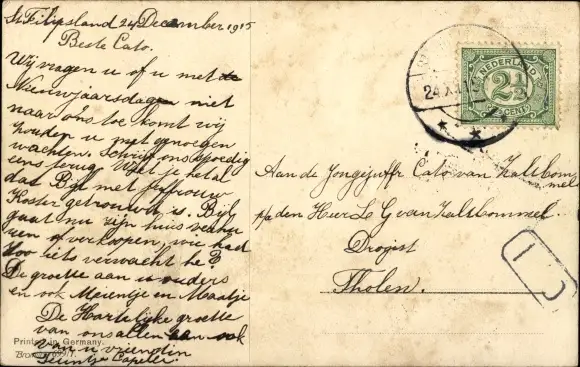 St Filipsland 24 December 1915
Beste Cato.
Wij vragen u of u met de
Nieuwjaarsdagen niet
naar ons toe komt wij
houden u met genoegen
wachten. Schrijf ons spoedig
eens terug. Weet je het al
dat Bijl met juffrouw
Koster getrouwd is. Bijl
gaat nu zijn huis verhu
ren of verkoopen, wie had
zoo iets verwacht he?
De groette aan u ouders
en ook Meientje en Maatje
De Hartelijke groette
van ons allen aan ook
van u vriendin
Capelle.
Printed in Germany.
NEDERLAND
2½
CENT
24 XII 1
Aan de Jongejuffr Cato van Zaltbom
mel
p/a den Heer L G van Zaltbommel
Drogist
Tholen.
1